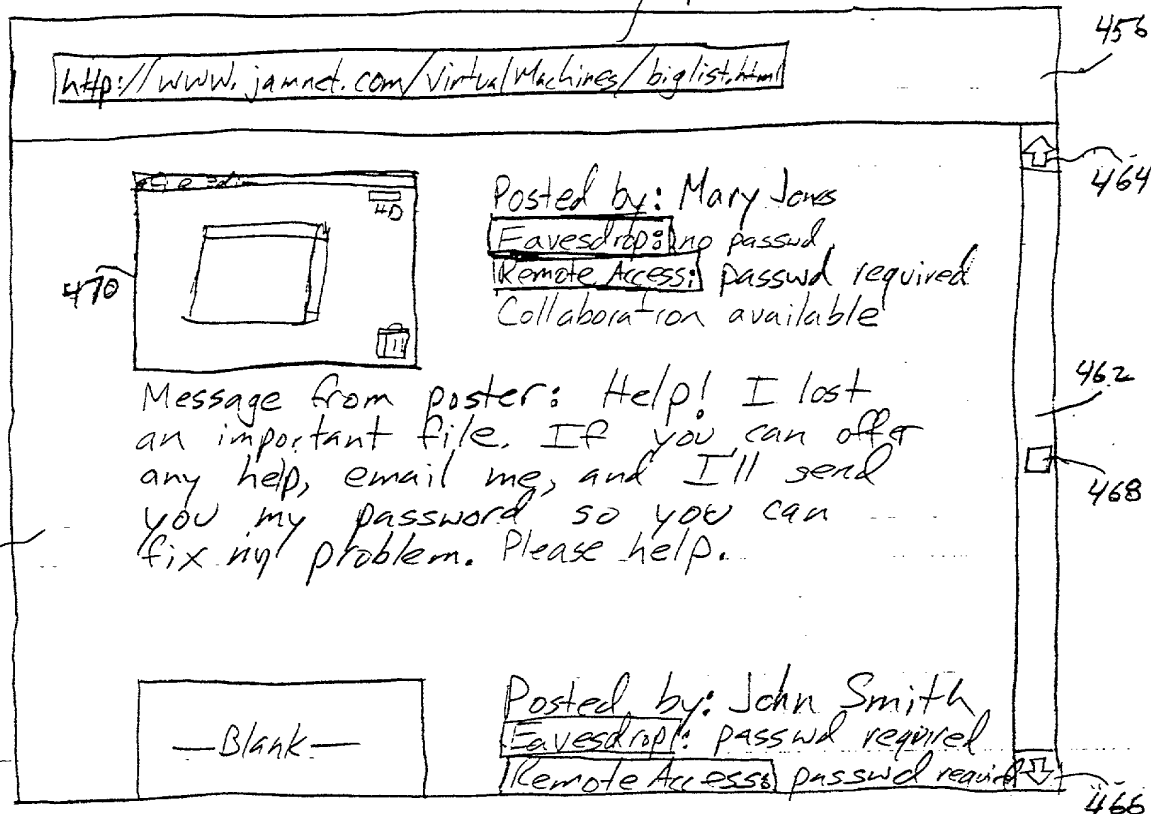 456
http://www.jamnet.com/VirtualMachines/biglist.html
464
HD
Posted by: Mary Jones
Eavesdrop: no passwd
Remote Access: passwd required
Collaboration available
470
Message from poster: Help! I lost
an important file. If you can offer
any help, email me, and I'll send
you my password so you can
fix my problem. Please help.
462
468
—Blank—
Posted by: John Smith
Eavesdrop: passwd required
Remote Access: passwd required
466